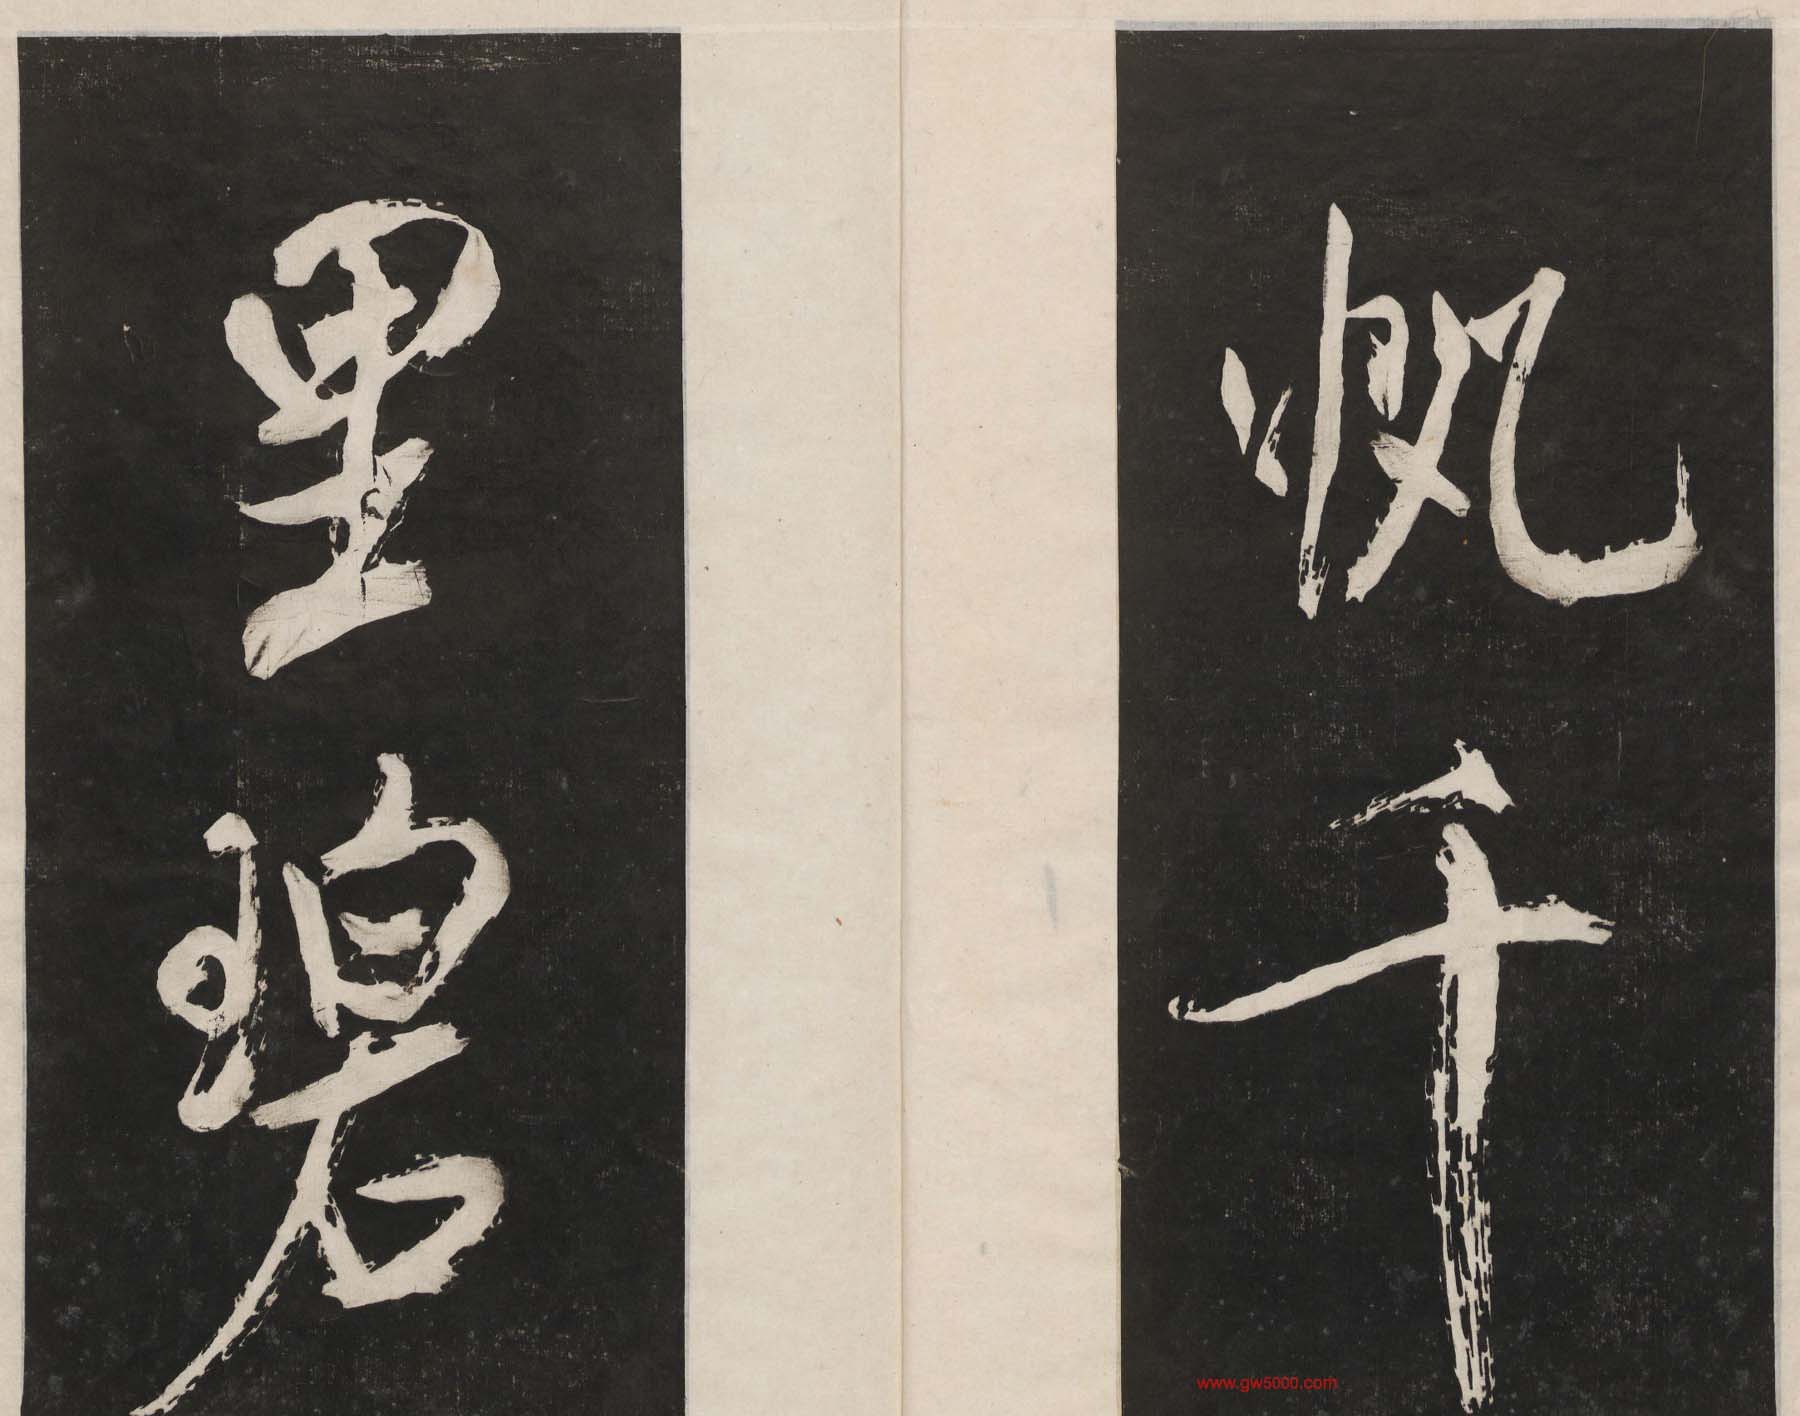 帆千
里碧
www.gw5000.com